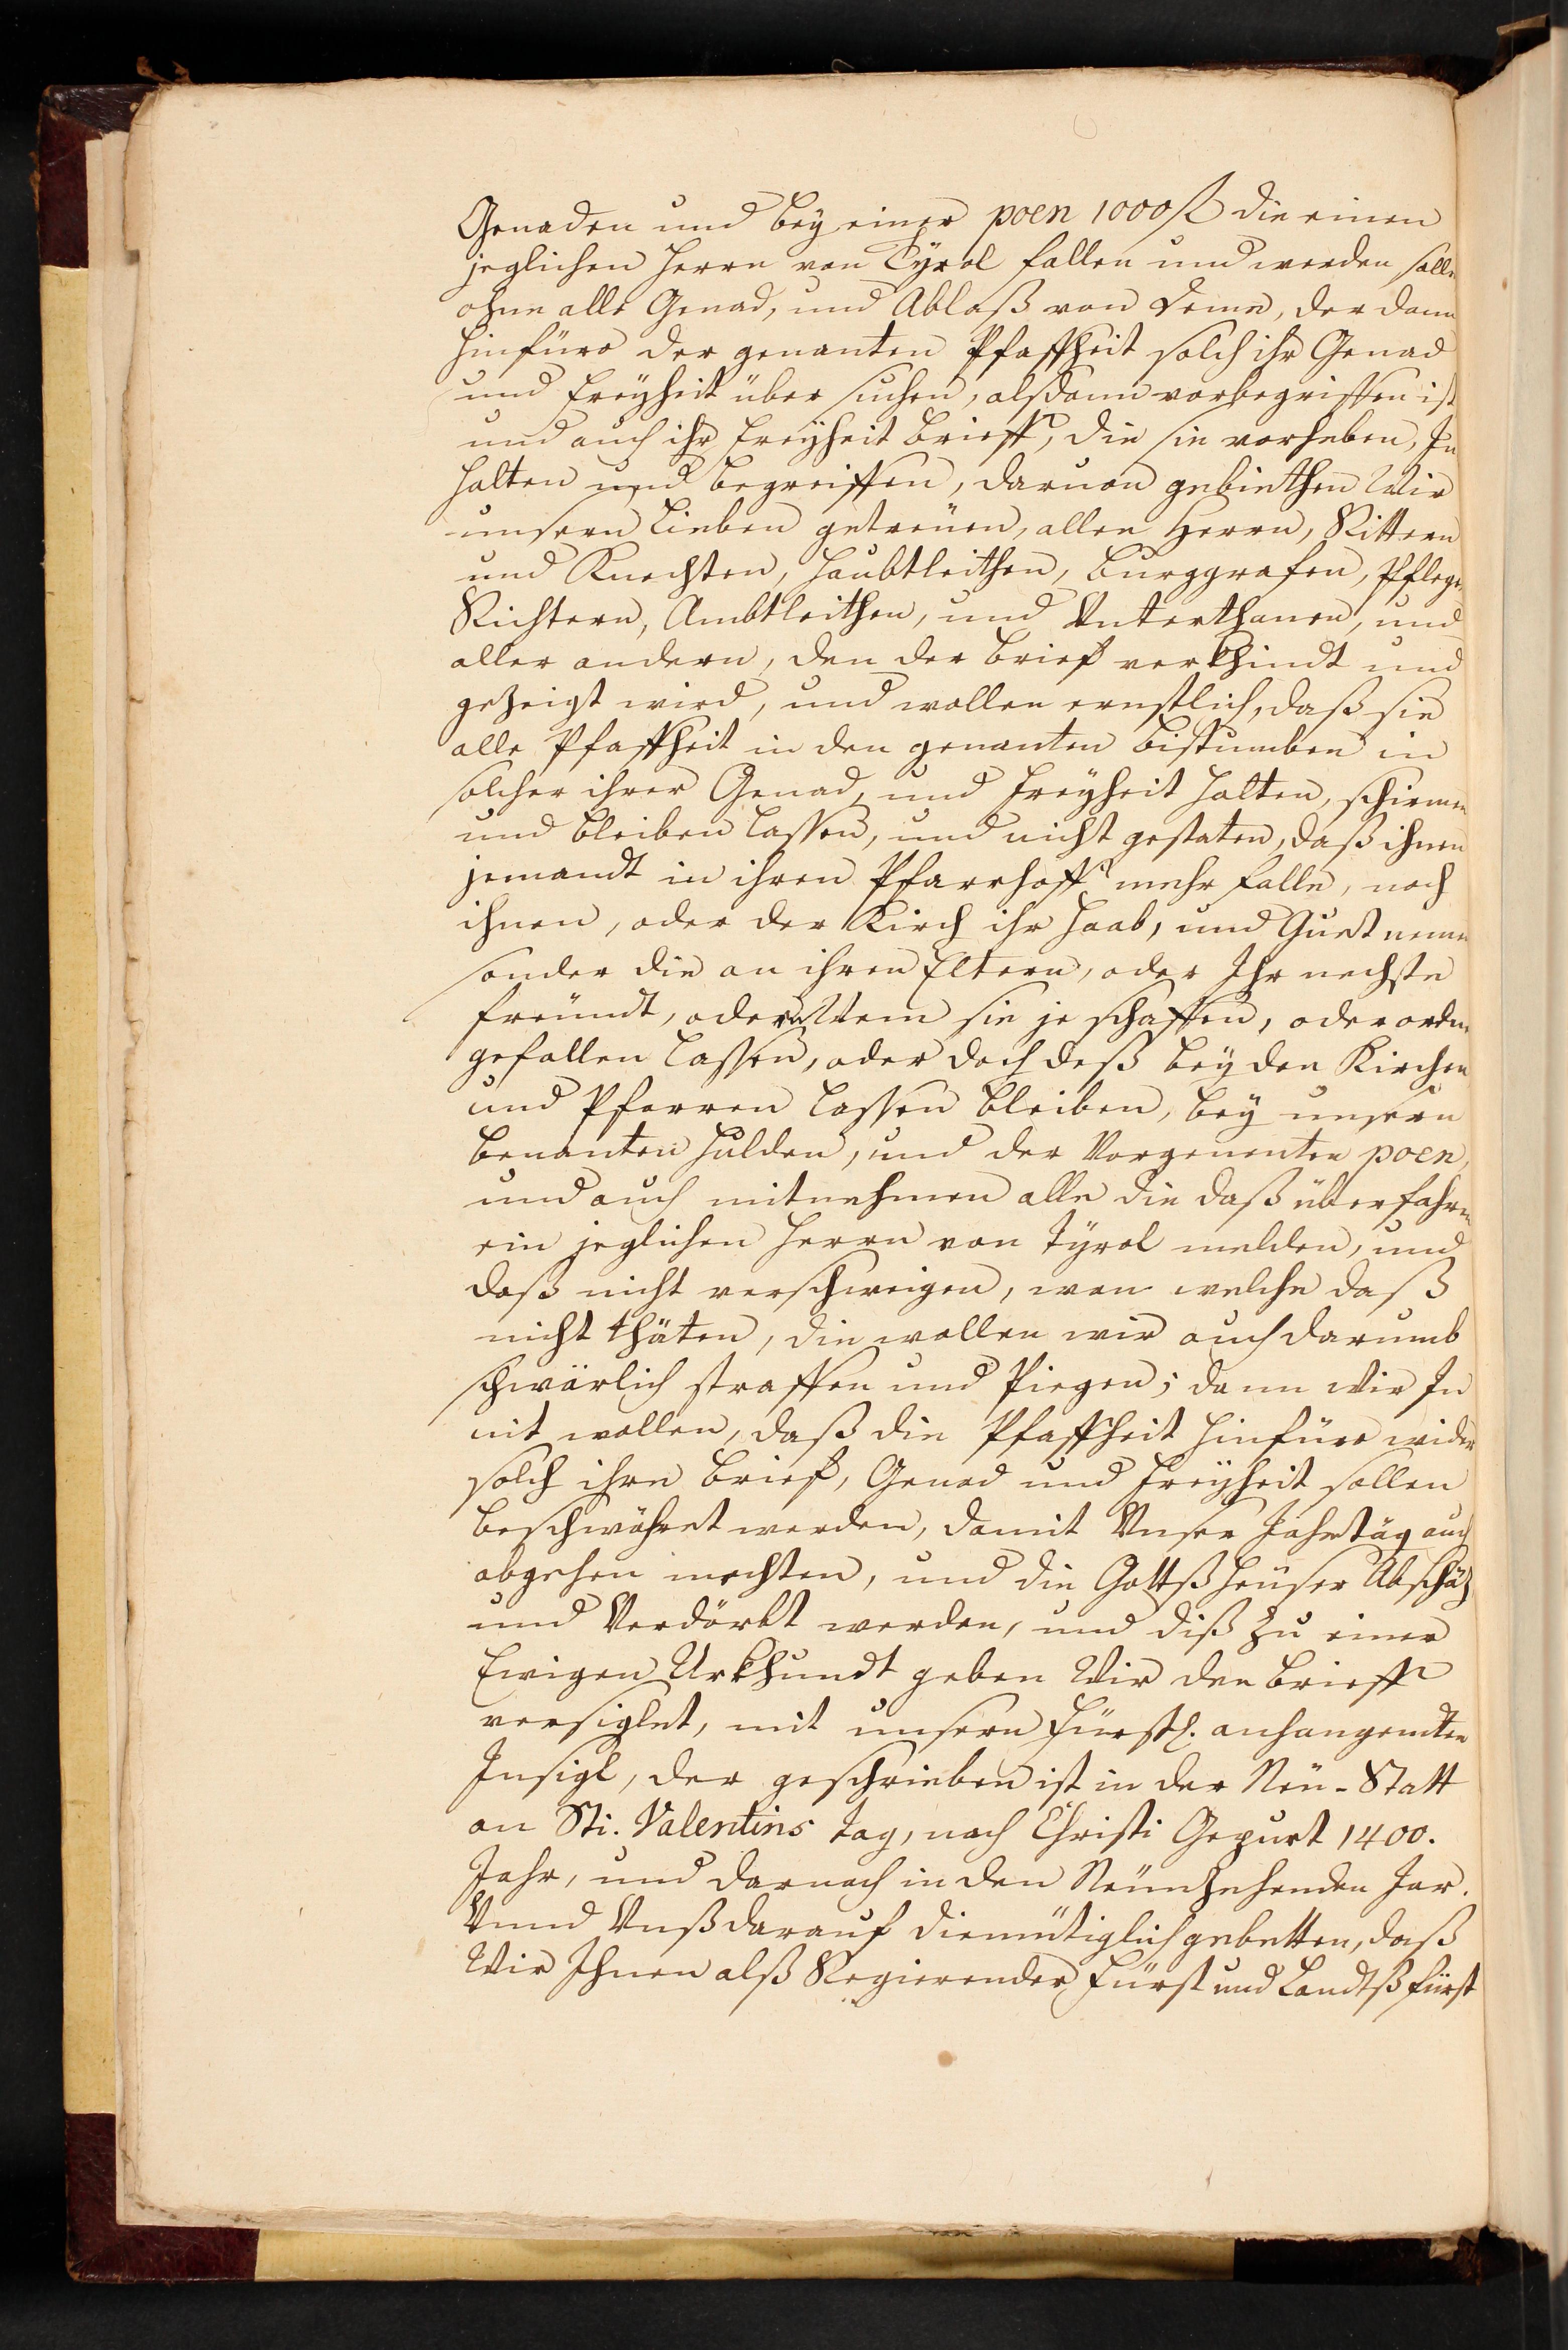 Genaden und bey einer poen 1000 ℔ die einem
jeglichen Herrn von Tÿrol fallen und werden solle
ohne alle Genad, und Ablaß von deme, der dann
hinfüro der genanten Pfaffheit solch ihr Genad
und Freÿheit über suchen, alsdann vorbegriffen ist
und auch ihr Freÿheit Brieff, die sie vorhaben, In
halten und begreiffen, daruon gebiethen Wir
unsern Lieben getreüen, allen Herrn, Rittern
und Knechten, Haubtleithen, Burggrafen, Pfleger
Richtern, Ambtleithen, und Vnterthanen, und
aller andern, den der Brief verkhindt und
gezeigt wird, und wollen ernstlich, daß sie
alle Pfaffheit in den genanten Bistumben in
solcher ihrer Genad, und Freÿheit halten, schirmen
und bleiben lassen, und nicht gestaten, daß ihnen
jemandt in ihren Pfarrhoff mehr falle, noch
ihnen, oder der Kirch ihr Haab, und Guet neme
sonder die an ihren Eltern, oder Ihr nechste
freündt, oder Wem sie je schaffen, oder ordne
gefallen lassen, oder doch deß beÿ den Kirchen
und Pfarren lassen bleiben, beÿ unsern
benanten Hulden, und der Vorgenenten poen,
und auch mitnehmen alle die daß überfahren
ein jeglichen Herrn von Tÿrol melden, und
daß nicht verschweigen, wan welche daß
nicht thäten, die wollen wir auch darumb
schwärlich straffen und Piegen; dann Wir In
nit wollen, daß die Pfaffheit hinfüro wider
solch ihre Brief, Genad und Freÿheit sollen
beschwähret werden, damit Vnser Jahrtäg auch
abgehen mechten, und die Gottßheüser Abschätz
und Verdörbt werden, und diß zu einer
Ewigen Urkhundt geben Wir den Brieff
versiglet, mit unsern Fürstl. anhangendten
Insigl, der geschrieben ist in der Neü-Statt
an Sti. Valentins Tag, nach Christi Gepurt 1400.
Jahr, und darnach in den Neünzehenden Jar.
Vnnd Vnß darauf diemütiglich gebetten, daß
Wir Ihnen alß Regierender Fürst und Landtßfürst